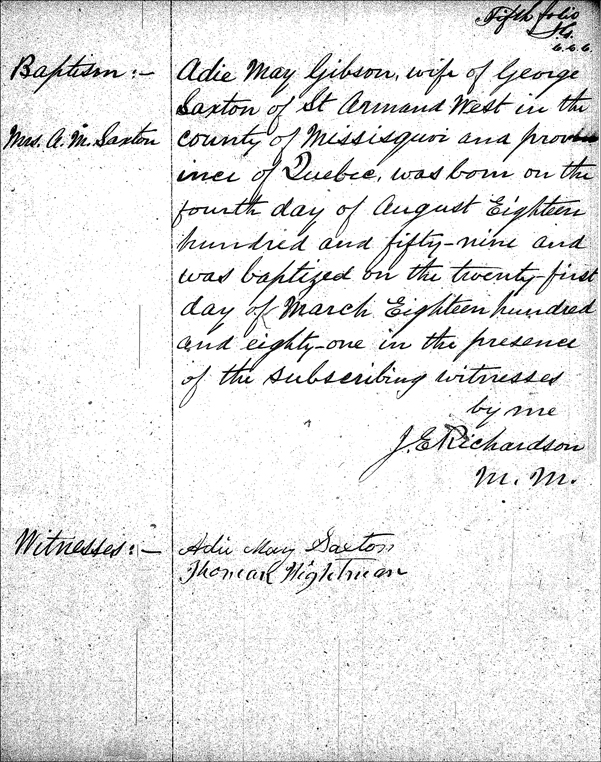 Fifth folio
Baptism :-
Mrs. A. M. Saxton
Adie May Gibson, wife of George
Saxton of St Armand West in the
county of Missisquoi and prov
ince of Quebec, was born on the
fourth day of August Eighteen
hundred and fifty-nine and
was baptized on the twenty-first
day of March Eighteen hundred
and eighty-one in the presence
of the subscribing witnesses
by me
J. E. Richardson
M. M.
Witnesses :-
Adie May Saxton
Thomas Wightman